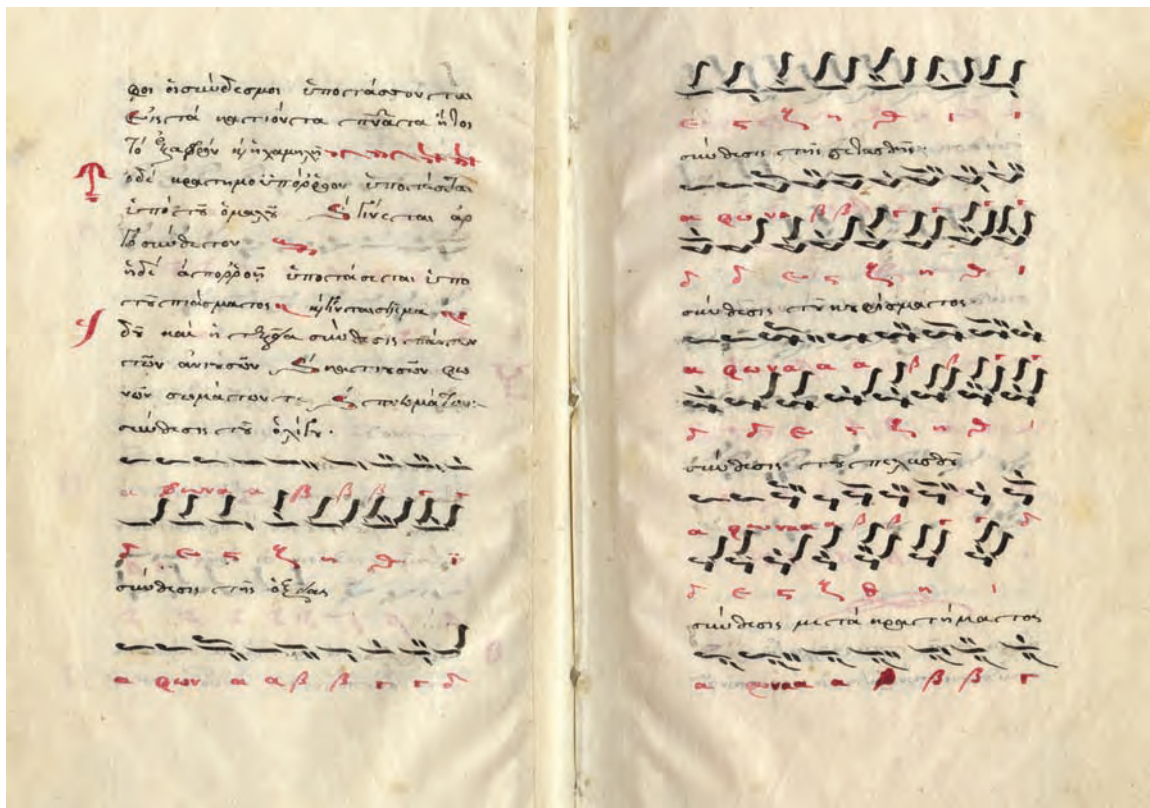 φοι οἱ σύνδεσμοι ὑποτάσσονται
Εἰς τὰ κατιόντα πνάτα ἤτοι
Τὸ ἐλαφρόν κ ἡ χαμηλή
ὁ δὲ κρατημοϋπόρροον ὑποτάσεται
ὑπὸ τοῦ ὁμαλοῦ κ γίνεται ἀρ
γοσύνθετον
ἡ δὲ ἀπορροή ὑποτάσεται ὑπο
τοῦ πιάσματος κ γίνεται σεῖσμα
δὴ καὶ ἡ σύνθεσις πάντων
τῶν ἀνιουσῶν κ κατιουσῶν φω
νῶν σωμάτων τε κ πνευμάτων:
σύνθεσις τοῦ ὀλίγου.
α φωνα α β β β γ γ
δ ε ς ζ η θ ϊ
σύνθεσις τῆς ὀξείας
α φων α α β β γ γ δ
ε ς ζ η θ ι ι
σύνθεσις τῆς πετασθῆς
α φωνα β β γ γ γ γ
δ δ ε ς ζ η θ ι
σύνθεσις τοῦ κουφίσματος
α φωνα α α β β γ γ
δ δ ε ς ζ η θ ι
σύνθεσις τοῦ πελασθοῦ
α φωναα α β β γ γ δ
δ ε ζ ς ζ θ η ι
σύνθεσις μετὰ κρατήματος
α φωναα α β β β γ